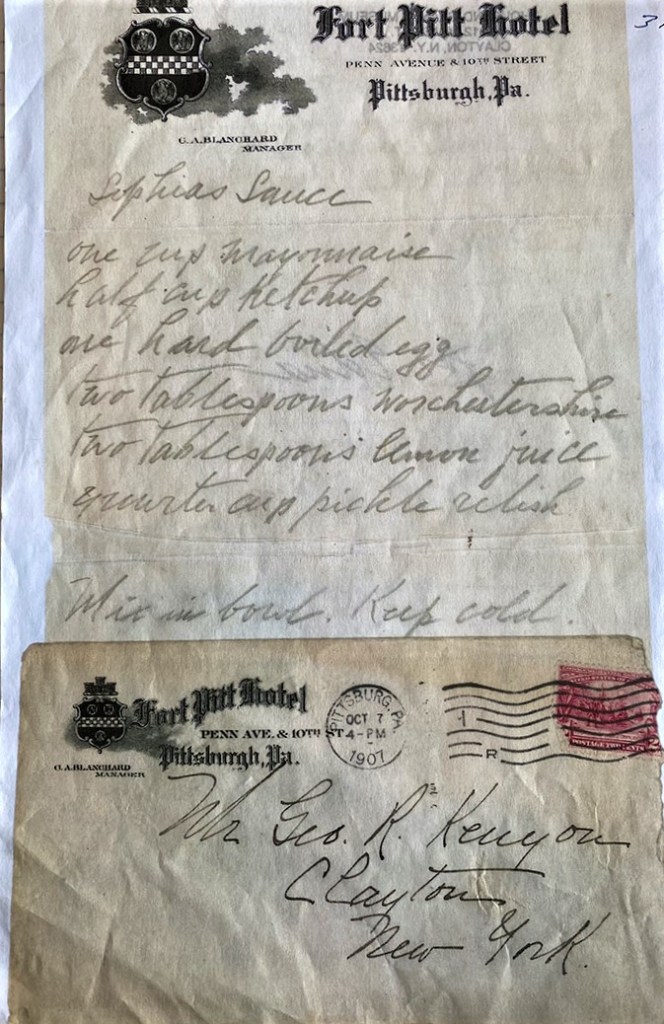 Fort Pitt Hotel
PENN AVENUE & 10TH STREET
Pittsburgh, Pa.
CLAYTON, N.Y. 13624
C.A. BLANCHARD
MANAGER
Sophias Sauce
one cup mayonnaise
half cup ketchup
one hard boiled egg
two tablespoons worchestershire
two tablespoons lemon juice
quarter cup pickle relish
Mix in bowl. Keep cold.
Fort Pitt Hotel
PENN AVE. & 10TH ST.
Pittsburgh, Pa.
C.A. BLANCHARD
MANAGER
PITTSBURG, PA.
OCT 7
4-PM
1907
1
R
POSTAGE TWO CENTS
2
Mr Geo. R. Kenyon
Clayton
New York.